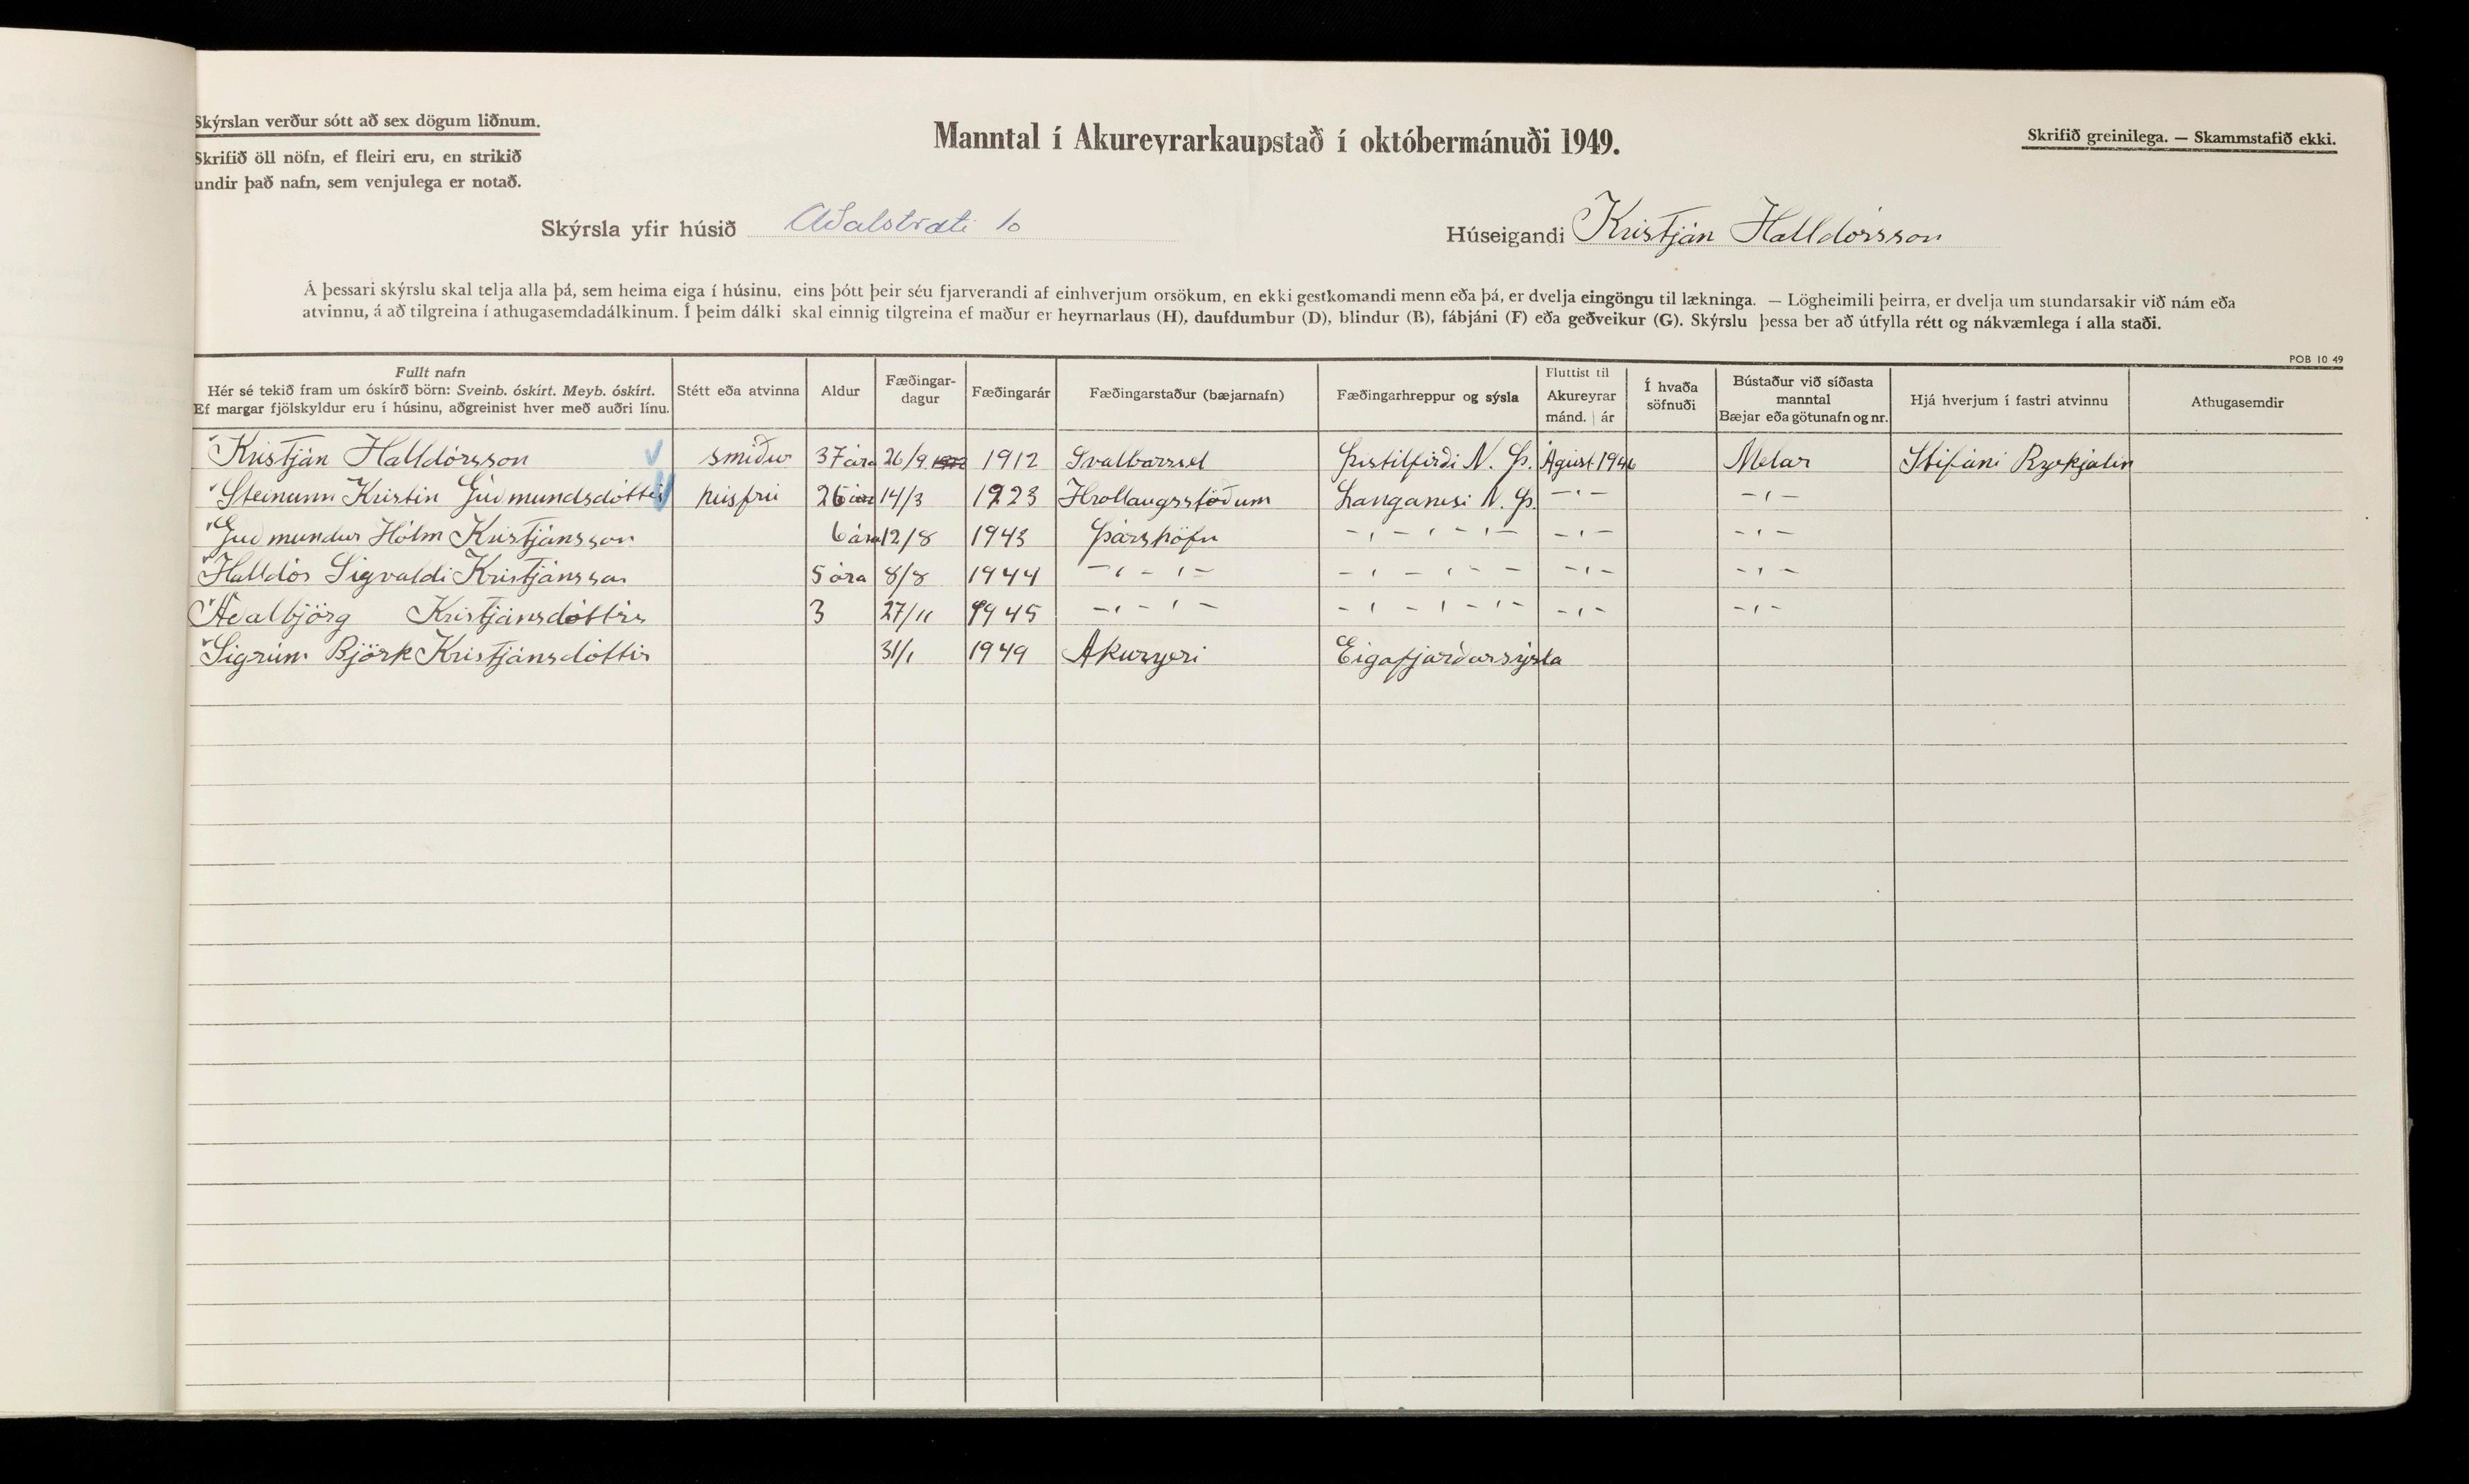 Skýrslan verður sótt að sex dögum liðnum.
Skrifið öll nöfn, ef fleiri eru, en strikið
undir það nafn, sem venjulega er notað.
Manntal í Akureyrarkaupstað í októbermánuði 1949.
Skrifið greinilega. — Skammstafið ekki.
Skýrsla yfir húsið Aðalstræti 10
Húseigandi Kristján Halldórsson
Á þessari skýrslu skal telja alla þá, sem heima eiga í húsinu, eins þótt þeir séu fjarverandi af einhverjum orsökum, en ekki gestkomandi menn eða þá, er dvelja eingöngu til lækninga. — Lögheimili þeirra, er dvelja um stundarsakir við nám eða
atvinnu, á að tilgreina í athugasemdadálkinum. Í þeim dálki skal einnig tilgreina ef maður er heyrnarlaus (H), daufdumbur (D), blindur (B), fábjáni (F) eða geðveikur (G). Skýrslu þessa ber að útfylla rétt og nákvæmlega í alla staði.
POB 10 49
Fullt nafn
Hér sé tekið fram um óskírð börn: Sveinb. óskírt. Meyb. óskírt.
Ef margar fjölskyldur eru í húsinu, aðgreinist hver með auðri línu.
Stétt eða atvinna
Aldur
Fæðingar-
dagur
Fæðingarár
Fæðingarstaður (bæjarnafn)
Fæðingarhreppur og sýsla
Fluttist til
Akureyrar
mánd. | ár
Í hvaða
söfnuði
Bústaður við síðasta
manntal
Bæjar eða götunafn og nr.
Hjá hverjum í fastri atvinnu
Athugasemdir
Kristján Halldórsson smiður 37 ára 26/9 1912 Svalbarssel Þistilfirði N. Þ. Ágúst 1946 Melar Stifáni Ryekjalin
Steinunn Kristin Guðmundsdóttir húsfrú 26 ára 14/3 1923 Hrollaugsstöðum Langanesi N. Þ. – ı – – ı –
Guðmundur Hólm Kristjánsson 6 ára 12/8 1943 Þórshöfn – ı – ı – ı – – ı – – ı –
Halldór Sigvaldi Kristjánsson 5 ára 8/8 1944 – ı – ı – – ı – ı – – – ı – – ı –
Aðalbjörg Kristjánsdóttir 3 27/11 1945 – ı – ı – – ı – ı – ı – – ı – – ı –
Sigrún Björk Kristjánsdóttir 31/1 1949 Akureyri Eigafjarðarsýsla